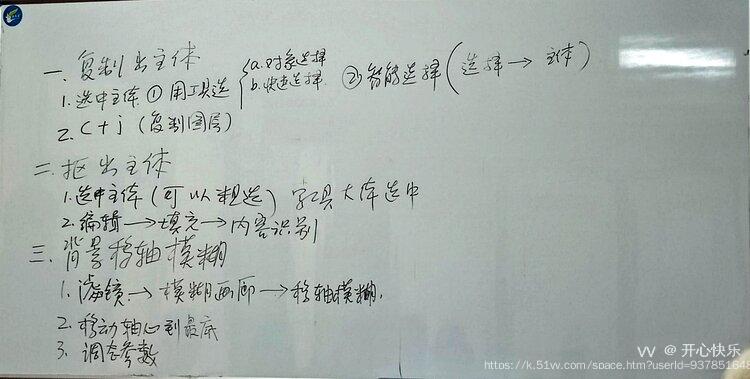 一. 复制出主体
1. 选中主体 ① 用工具选 { a. 对象选择 b. 快速选择 ② 智能选择(选择 → 主体)
2. C + j (复制图层)
二. 抠出主体
1. 选中主体(可以粗选) 工具大体选中
2. 编辑 → 填充 → 内容识别
三. 背景移轴模糊
1. 滤镜 → 模糊画廊 → 移轴模糊.
2. 移动轴心到最底
3. 调态参数
@ 开心快乐
https://k.51vv.com/space.htm?userId=937851648